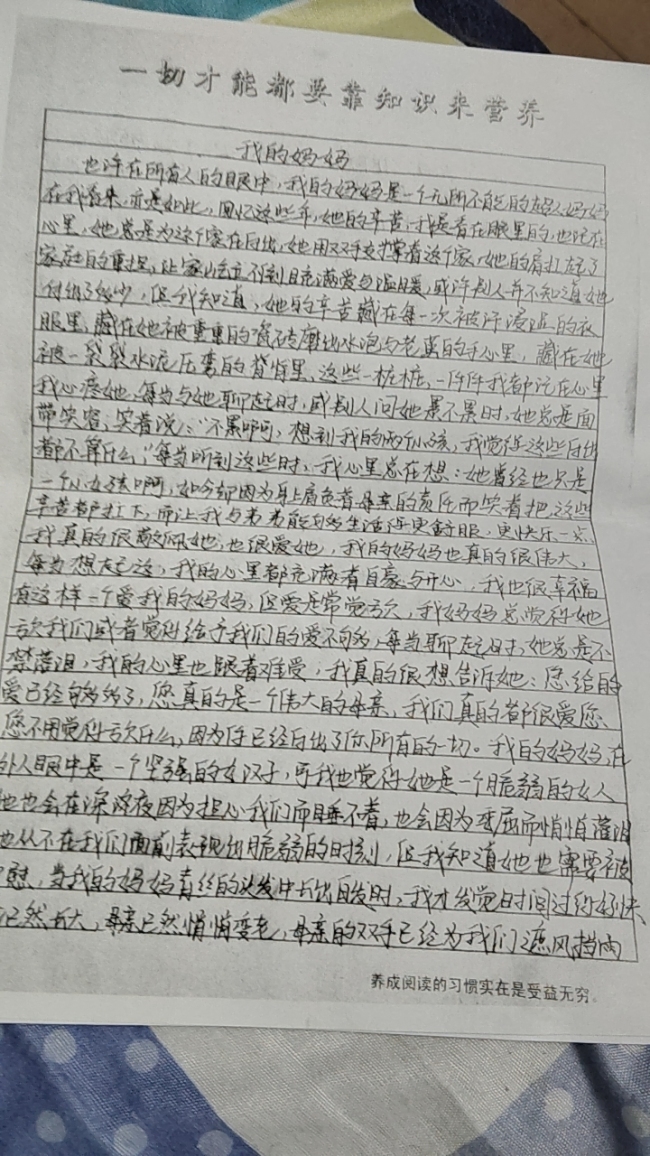 一切才能都要靠知识来营养
我的妈妈
也许在所有人的眼中，我的妈妈是一个无所不能的超人妈妈
在我看来，亦是如此，回忆这些年，她的辛苦我是看在眼里的，也记在
心里，她总是为这个家在付出，她用双手支撑着这个家，她的肩扛起了
家庭的重担，让家里充满爱与温暖，或许别人并不知道她
付出了多少，但我知道，她的辛苦藏在每一次被汗浸湿的衣
服里，藏在她被重重的瓷砖磨出水泡与老茧的手心里，藏在她
被一袋袋水泥压弯的背脊里，这些一桩桩，一件件我都记在心里
我心疼她，每当与她聊起时，或别人问她累不累时，她总是面
带笑容，笑着说：“不累啊，想到我的两个小孩，我觉得这些付出
都不算什么，”每当听到这些时，我心里总在想：她曾经也只是
一个小女孩啊，如今却因为身上肩负着母亲的责任而笑着把这些
辛苦都扛下，而让我与弟弟能够生活得更舒服，更快乐一点
我真的很敬佩她，也很爱她，我的妈妈也真的很伟大，
每当想起这，我的心里都充满着自豪与开心，我也很幸福
有这样一个爱我的妈妈，但爱是常觉亏欠，我妈妈总觉得她
亏欠我们或者觉得给予我们的爱不够多，每当聊起时，她总是不
禁落泪，我的心里也跟着难受，我真的很想告诉她：您给的
爱已经够多了，您真的是一个伟大的母亲，我们真的都很爱您、
您不用觉得亏欠什么，因为你已经付出了你所有的一切。我的妈妈，在
外人眼中是一个坚强的女汉子，可我也觉得她是一个脆弱的女人
她也会在深夜因为担心我们而睡不着，也会因为委屈而悄悄落泪
也从不在我们面前表现出脆弱的时刻，但我知道她也需要被
慰，当我的妈妈青丝的头发中长出白发时，我才发觉时间过得好快、
已然长大，母亲已然悄悄变老，母亲的双手已经为我们遮风挡雨
养成阅读的习惯实在是受益无穷。